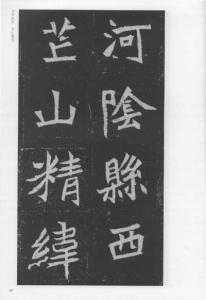 河陰縣西
芒山精緯